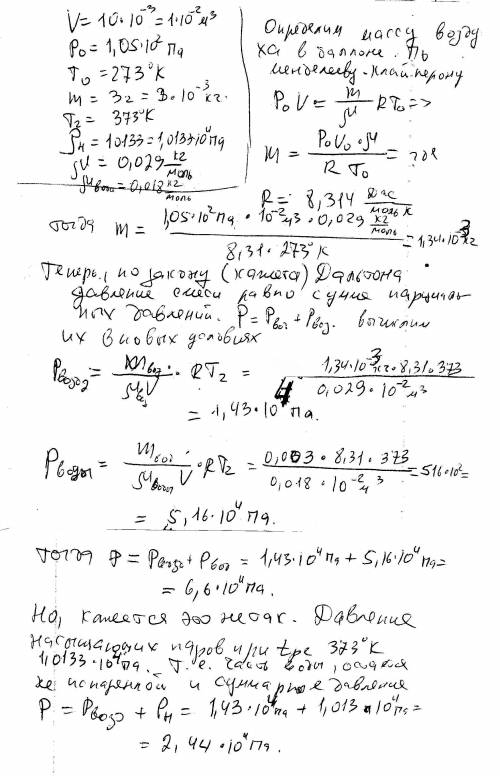 V = 10·10⁻³ = 1·10⁻² м³
P₀ = 1,05·10² Па
T₀ = 273°K
m = 3г = 3·10⁻³ кг.
T₂ = 373°K
Pн = 10133 = 1,013·10⁴ Па
μ = 0,029 кг/моль
μвод = 0,018 кг/моль
Определим массу возду
ха в баллоне. По
менделееву-клайперону
P₀V = m/μ RT₀ =>
m = P₀V₀·μ / R T₀ =
R = 8,314 Дж/моль К
тогда m = 1,05·10² Па · 10⁻² м³ · 0,029 кг/моль / 8,31·273°K = 1,34·10⁻³ кг
Теперь, по закону (кажется) Дальтона
давление смеси равно сумме парциаль
ных давлений. P = Pвог + Pвоз. вычислим
их в новых условиях
Pвозд = mвоз./μвз V · RT₂ = 1,34·10⁻³ кг·8,31·373 / 0,029·10⁻² м³
= 1,43·10⁴ Па.
Pводы = mвог/μводы V · RT₂ = 0,003·8,31·373 / 0,018·10⁻² м³ = 516·10² =
= 5,16·10⁴ Па.
тогда P = Pвозд + Pвод = 1,43·10⁴ Па + 5,16·10⁴ Па =
= 6,6·10⁴ Па.
Но, кажется это не так. Давление
насыщающих паров при tре 373°K
1,0133·10⁴ Па. Т.е. часть воды,
не испаренной и суммарное давление
P = Pвозд + Pн = 1,43·10⁴ Па + 1,013·10⁴ Па =
= 2,44·10⁴ Па.